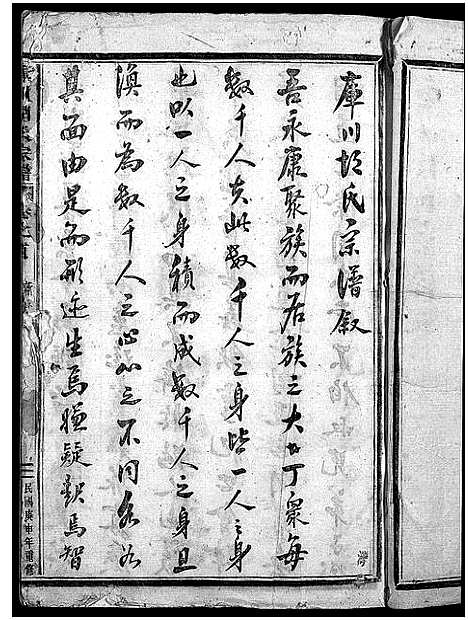 庫川胡氏宗譜叙
吾永康聚族而居族之大者丁衆每
數千人夫此數千人之身皆一人之身
也以一人之身積而成數千人之身且
渙而為數千人之心心之不同各如
其面由是而形迹生焉嫌疑釁焉智
民國庚申年重修